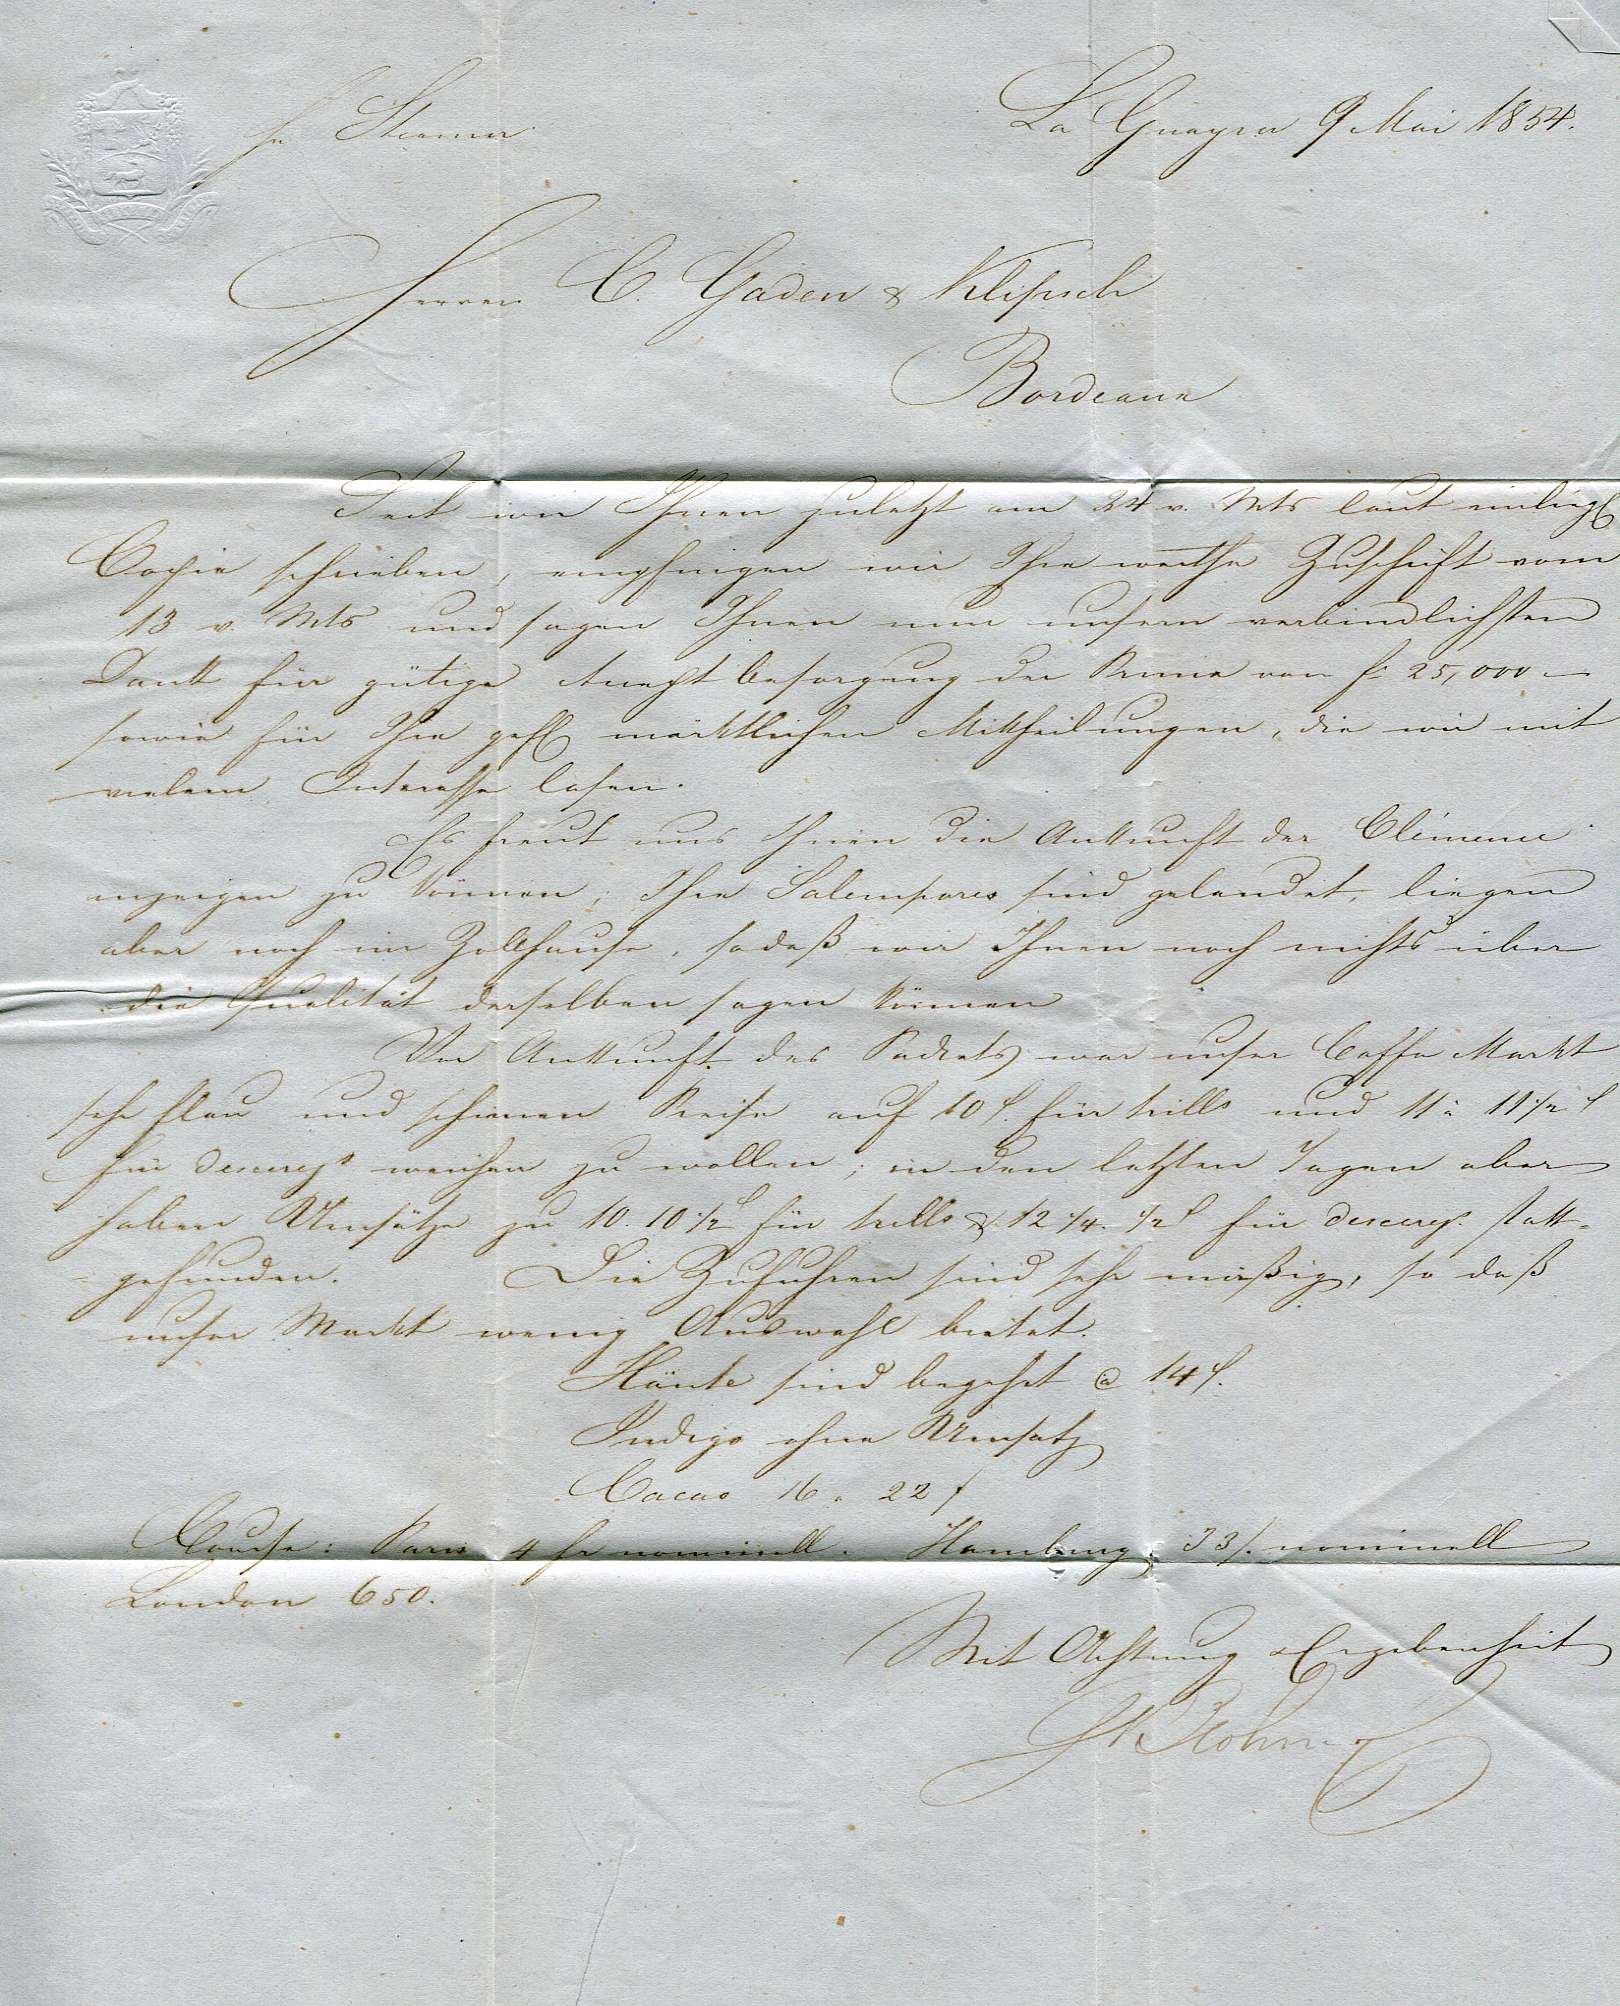 pr Steamer
La Guayra 9 Mai 1854.
Herren C. Gaden & Klipsch
Bordeaux
Seit wir Ihnen zuletzt am 24 v. Mts laut einlieg
Copie schrieben, empfingen wir Ihre werthe Zuschrift vom
13 v. Mts und sagen Ihnen nun unsern verbindlichsten
Dank für gütige Besorgung der von fr 25,000 –
sowie für Ihre gefl marktlichen Mittheilungen, die wir mit
vielem Interesse lasen.
Es freut uns Ihnen die Ankunft der Clémence
anzeigen zu können; Ihre Salempores sind gelandet, liegen
aber noch im Zollhause, sodaß wir Ihnen noch nichts über
die Qualität derselben sagen können
Vor Ankunft des Packets war unser Caffe Markt
sehr flau und schienen Preise auf 10 für trills und 11 à 11 1/2
für descerez weichen zu wollen; in den letzten Tagen aber
haben Umsätze zu 10. 10 1/2 für trills & 12 1/4. 1/2 für descerez. statt=
=gefunden. Die Zufuhren sind sehr mäßig, so daß
unser Markt wenig Auswahl bietet.
Häute sind begehrt @ 14
Indigo ohne Umsatz
Cacao 16 a 22
Course: Paris 4 fr nominell. Hamburg 33 nominell
London 650.
Mit Achtung & Ergebenheit